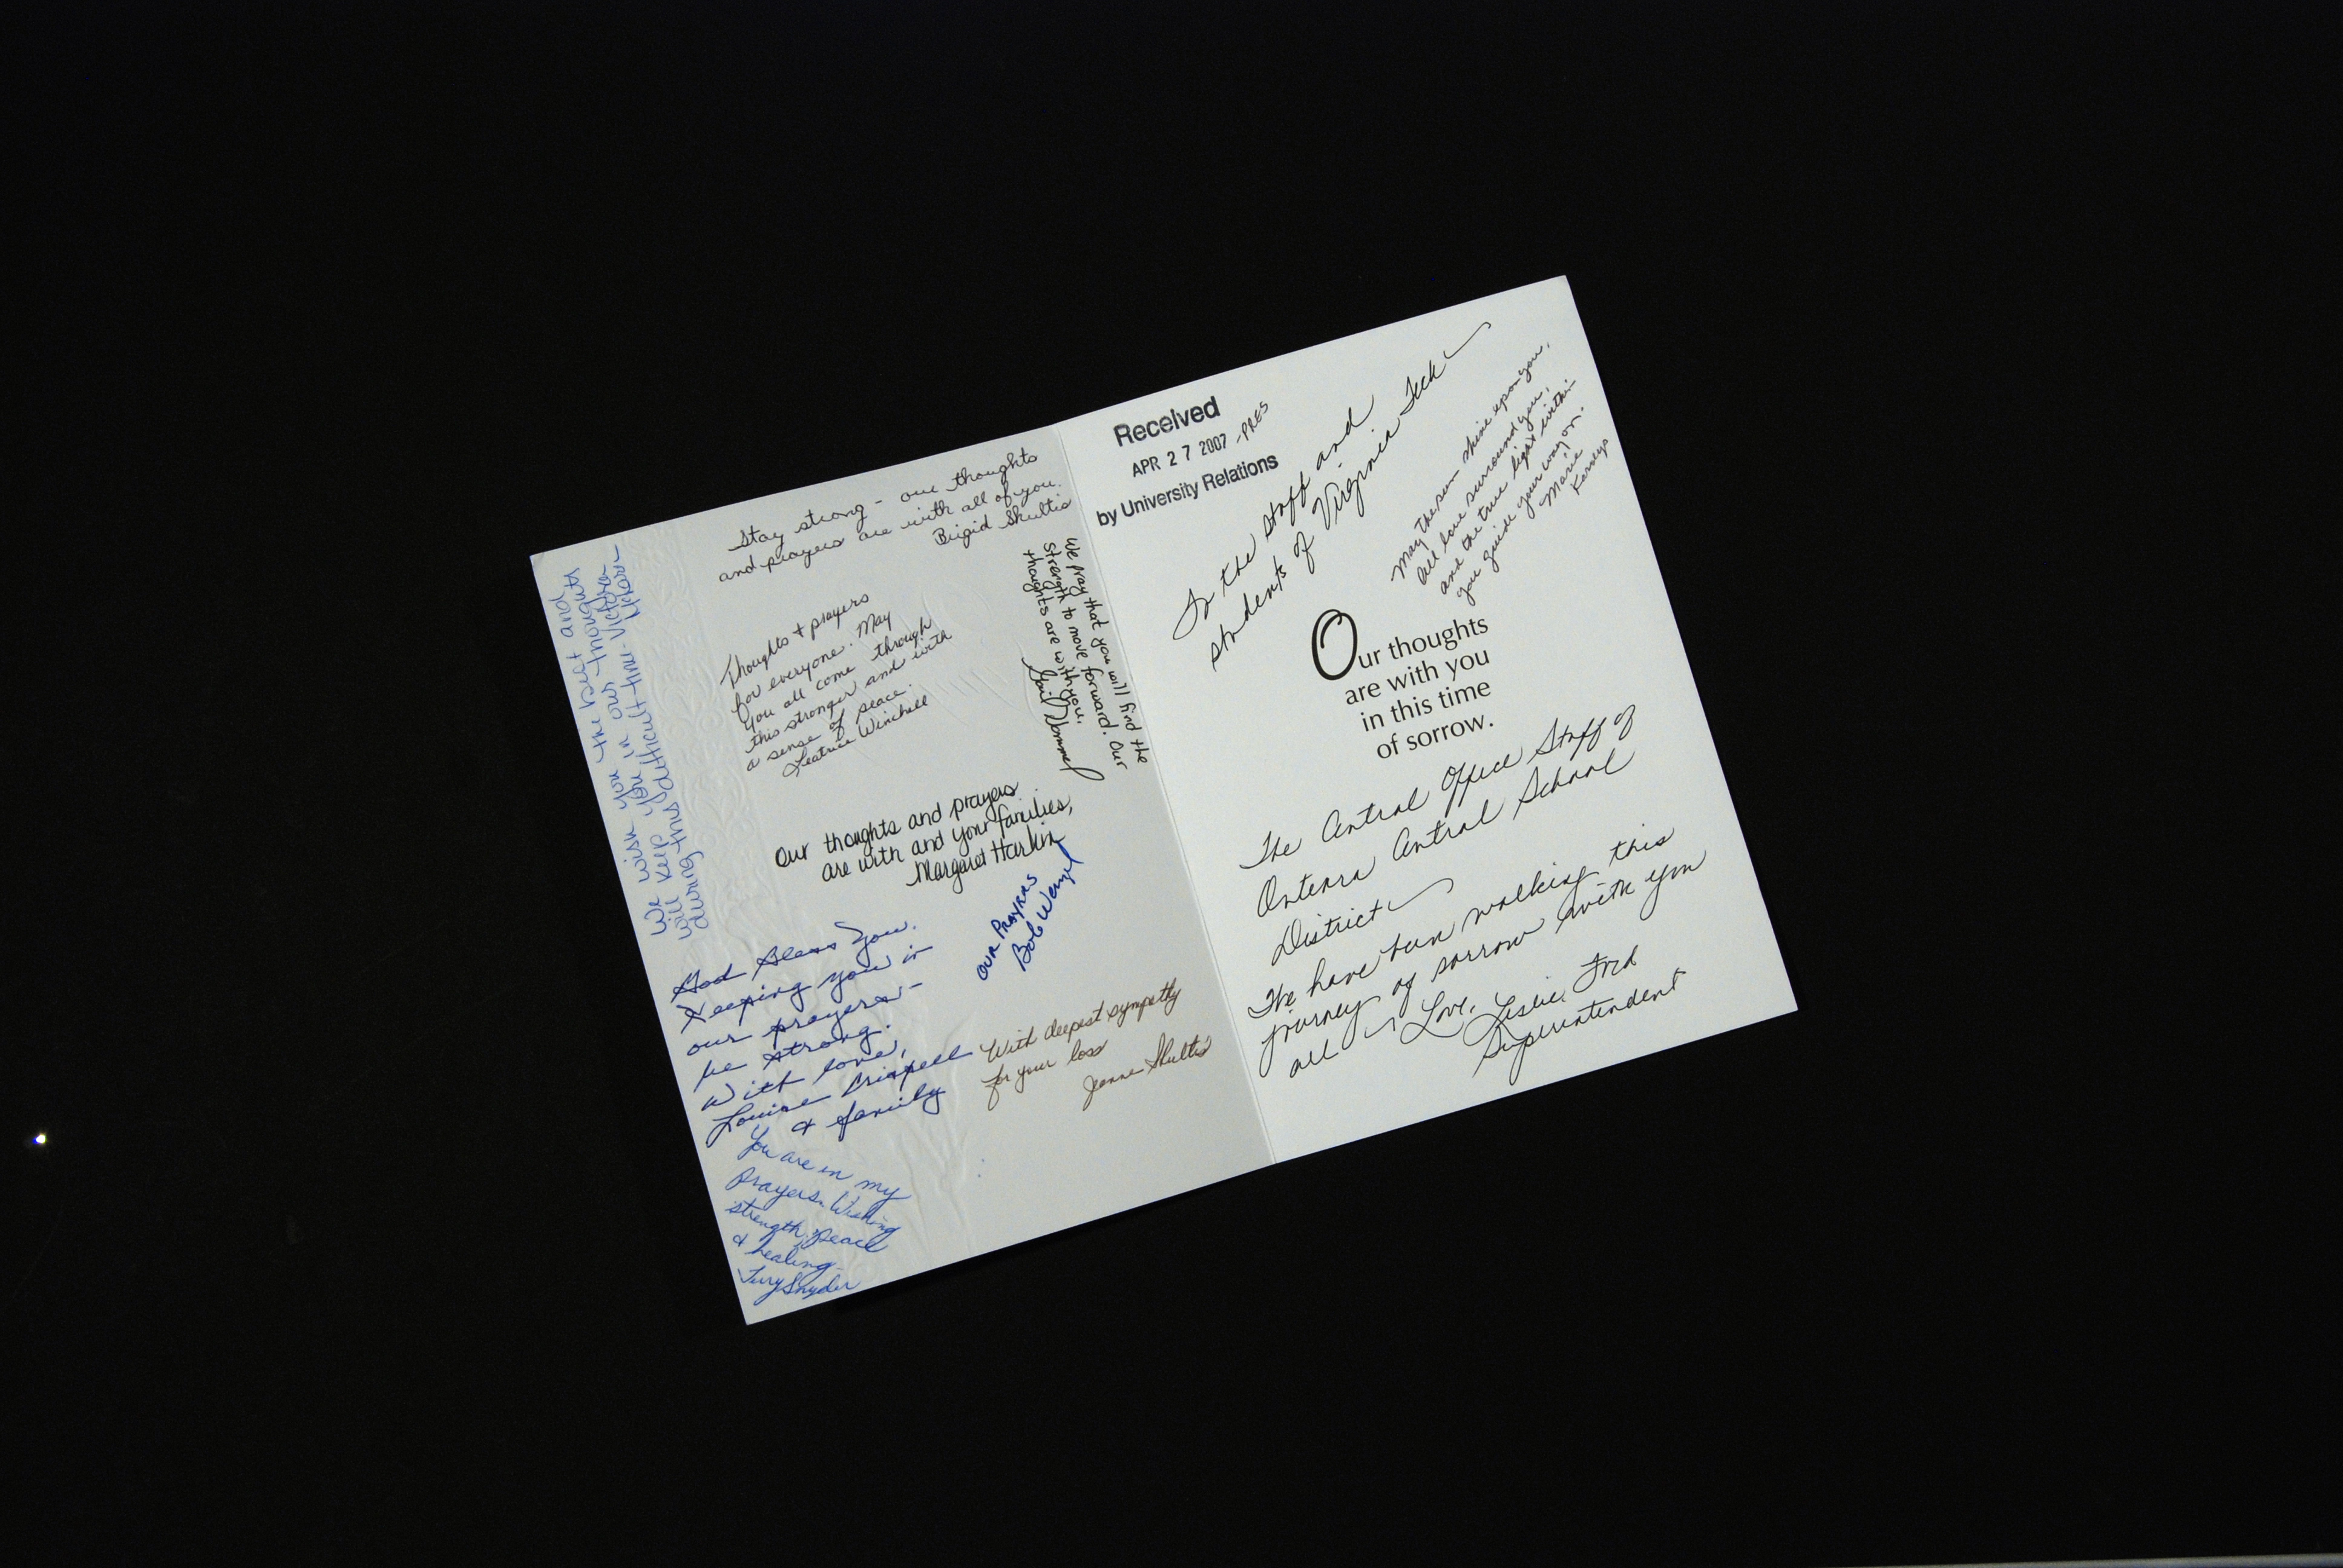 We wish you the best and
will keep you in our thoughts
during this difficult time. Victoria
Stay strong - our thoughts
and prayers are with all of you.
Brigid Shultis
Thoughts + prayers
for everyone. May
you all come through
this stronger and with
a sense of peace.
Leatrice Winchell
We pray that you will find the
strength to move forward. Our
thoughts are with you.
Gail
Our thoughts and prayers
are with and your families,
Margaret Harkin
Our Prayers
Bob Wenzel
God Bless You.
Keeping you in
our prayers -
be strong.
With love,
Louise Crispell
& family
With deepest sympathy
for your loss
Jeanne Shultis
You are in my
prayers. Wishing
strength, peace
& healing
Snyder
Received
APR 27 2007 -PRES
by University Relations
To the Staff and
students of Virginia Tech
May the sun shine upon you,
all love surround you,
and the true light within
you guide your way on.
Marie
Our thoughts
are with you
in this time
of sorrow.
The Central Office Staff of
Onteora Central School
District
We have been walking this
journey of sorrow with you
all - Love, Leslie Ford
Superintendent